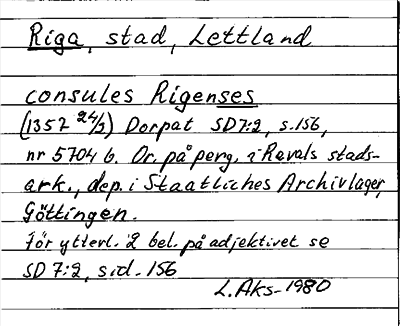 Riga, stad, Lettland
consules Rigenses
(1357 24/3) Dorpat SD7:2, s.156,
nr 5704 b. Or. på perg, i Revals stads-
ark., dep. i Staatliches Archivlager,
Göttingen.
För ytterl. 2 bel. på adjektivet se
SD 7:2, sid. 156
L. Aks- 1980